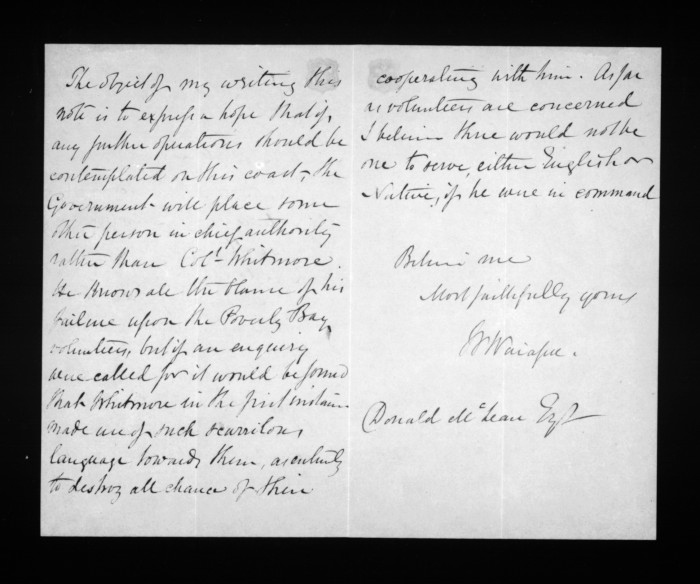 The object of my writing this
note is to express a hope that if
any further operations should be
contemplated on this coast, the
Government will place some
other person in chief authority
rather than Colˡ Whitmore.
He throws all the blame of his
failure upon the Poverty Bay
volunteers, but if an enquiry
were called for it would be found
that Whitmore in the first instance
made use of such scurrilous
language towards them, as entirely
to destroy all chance of their
cooperating with him. As far
as volunteers are concerned
I believe there would not be
one to serve, either English or
Native, if he were in command
Believe me
Most faithfully yours
W Waiapu.
Donald McLean Esqr